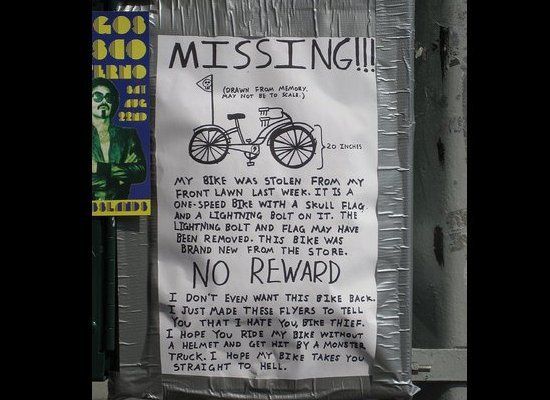 GOS
SCO
ERNO
SAT
AUG
22ND
SSLANDS
MISSING!!!
(DRAWN FROM MEMORY.
MAY NOT BE TO SCALE.)
20 INCHES
MY BIKE WAS STOLEN FROM MY
FRONT LAWN LAST WEEK. IT IS A
ONE-SPEED BIKE WITH A SKULL FLAG
AND A LIGHTNING BOLT ON IT. THE
LIGHTNING BOLT AND FLAG MAY HAVE
BEEN REMOVED. THIS BIKE WAS
BRAND NEW FROM THE STORE.
NO REWARD
I DON'T EVEN WANT THIS BIKE BACK.
I JUST MADE THESE FLYERS TO TELL
YOU THAT I HATE YOU, BIKE THIEF.
I HOPE YOU RIDE MY BIKE WITHOUT
A HELMET AND GET HIT BY A MONSTER
TRUCK. I HOPE MY BIKE TAKES YOU
STRAIGHT TO HELL.